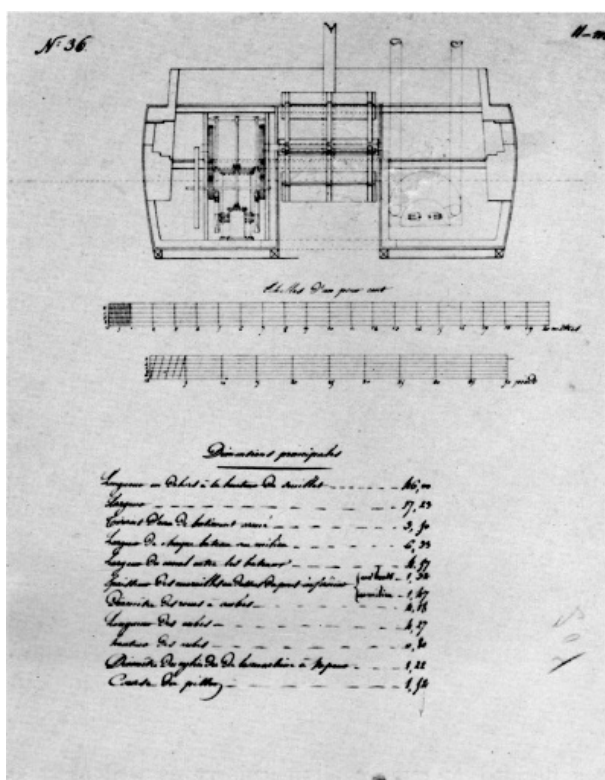 N.° 36.
Echelles d'un pour cent
mètres
pieds
Dimensions principales
Longueur en dehors à la hauteur de seuillet 46,00
Largeur 17,23
Tirant d'eau du bâtiment armé 3,90
Largeur de chaque bateau au milieu 6,33
Largeur du canal entre les bateaux 4,57
Epaisseur des murailles au dessus du pont inférieur 1,32
au milieu 1,47
Diamètre des roues à aubes
Longueur des aubes 4,27
hauteur des aubes
Diamètre du cylindre de la machine à vapeur 1,22
Course du piston 1,52